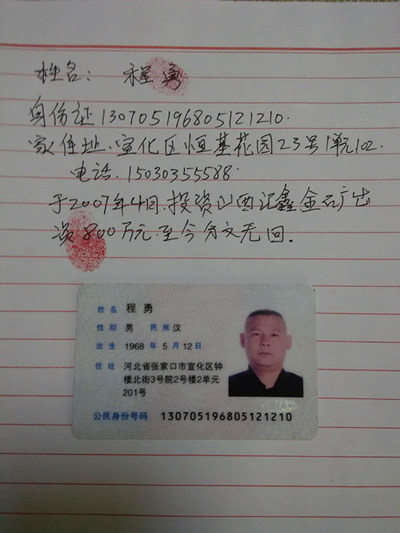 姓名：程勇
身份证130705196805121210.
家住址.宣化区恒基花园23号1单元102.
电话.15030355588
于2007年4月.投资山西汇鑫金矿出
资800万元.至今分文无回.
姓名 程勇
性别 男 民族 汉
出生 1968 年 5 月 12 日
住址 河北省张家口市宣化区钟
楼北街3号院2号楼2单元
201号
公民身份号码 130705196805121210